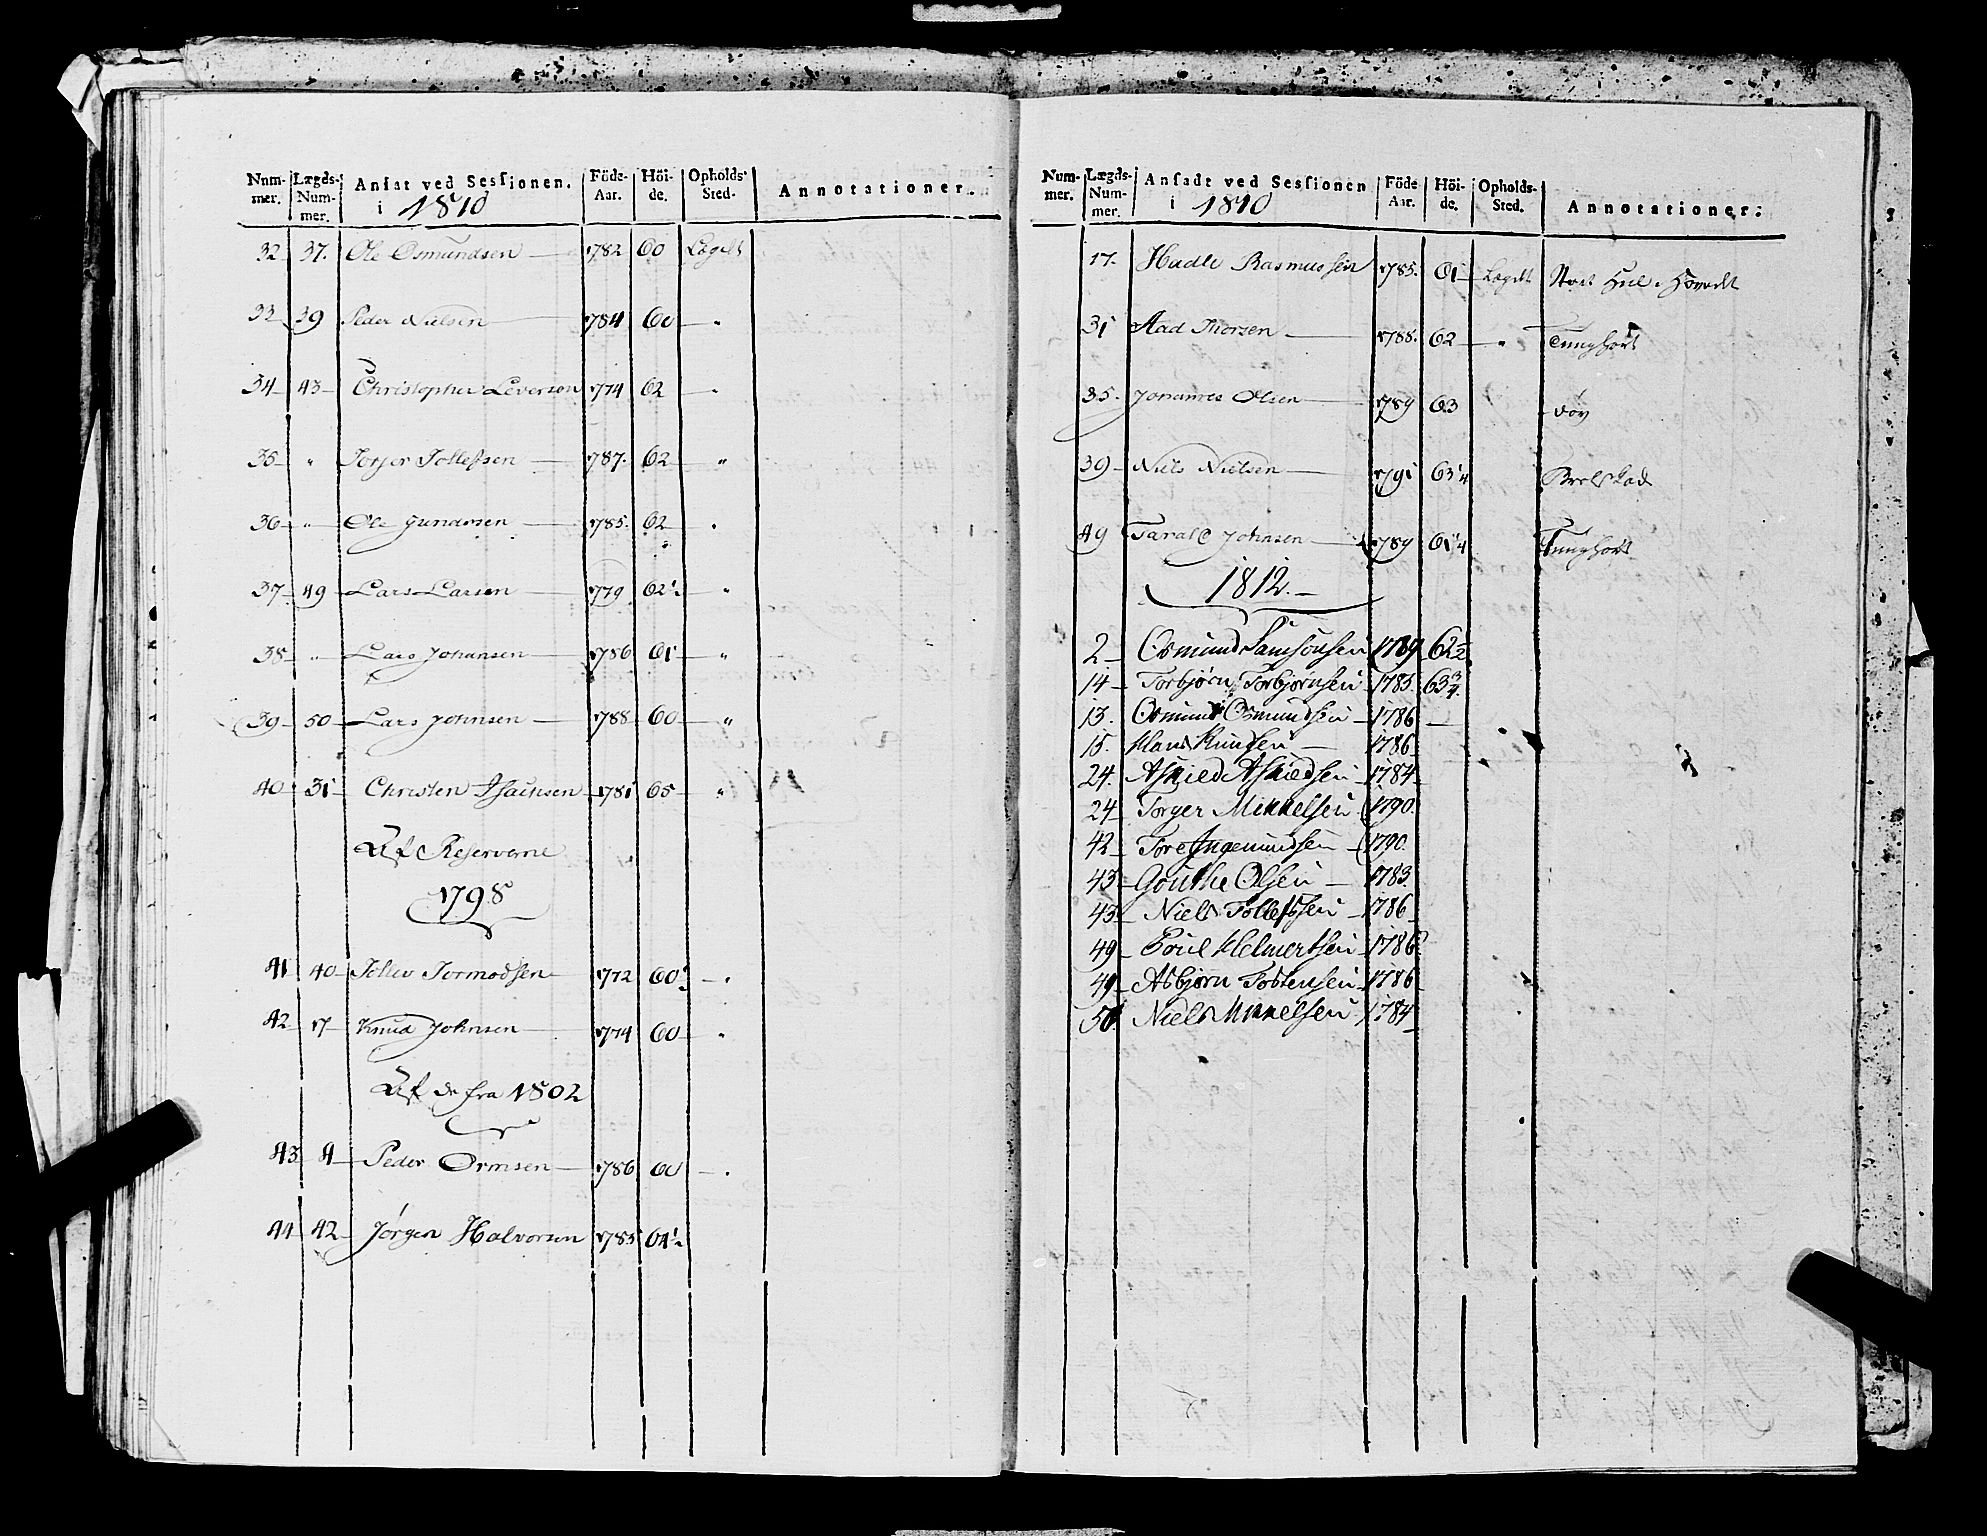 Num-mer. Lægds-Num-mer. Ansat ved Sessionen. i 1810 Föde-Aar. Höi-de. Opholds-Sted. Annotationer.
32 37. Ole Osmundsen 1782 60 Lægdt
33 39 Peder Nielsen 1784 60 "
34 43 Christopher Leversen 1774 62 "
35 " Torger Tollefsen 1787. 62 "
36 " Ole Gundersen 1785. 62 "
37 49 Lars Larsen 1779 62½ "
38 " Lars Johansen 1786 61 "
39 50 Lars Johnsen 1788 60 "
40 31 Christen Isachsen 1781 65 "
Af Reserverne
1798
41 40 Tollev Tormodsen 1772 60½ "
42 17 Knud Johnsen 1774 60 "
Af de fra 1802
43 4 Peder Ormsen 1786 60 "
44 42 Jørgen Halvorsen 1785 61½
Num-mer. Lægds-Num-mer. Ansadt ved Sessionen i 1810 Föde Aar. Höi-de. Opholds-Sted. Annotationer:
17. Hadle Rasmussen 1785. 61 Lægdt Stort Hul i Hovedet
31 Aad Thorsen 1788. 62 " Tunghørt
35. Johannes Olsen 1789 63 døv
39 Niels Nielsen 1791 63¼
49 Tarald Johnsen 1789 61¼ Tunghørt
1812.
2 Osmund Samsonsen 1789 62½
14 Torbjørn Torbjørnsen 1785. 63¾.
13. Osmund Osmundsen 1786
15. Hans Knudsen 1786
24. Askied Askiedsen 1784
24 Torger Mikkelsen 1790.
42 Tore Ingemundsen 1790.
43 Gouthe Olsen 1783.
43 Niels Tollefssen 1786
49 Poul Helmertsen 1786
49 Asbjørn Tostensen 1786
50 Niels Mikkelsen 1784